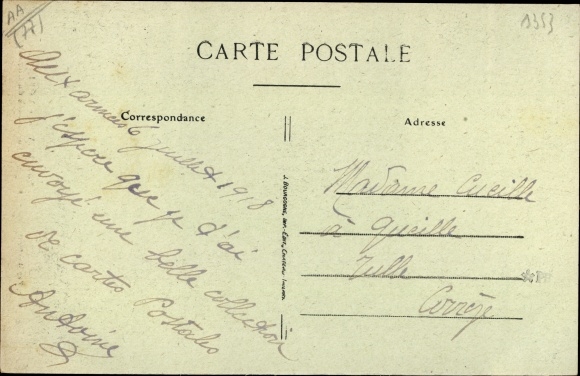 AA
(77)
1353
CARTE POSTALE
Correspondance
Adresse
Aux armées 6 juillet 1918
j'espère que je t'ai
envoyé une belle collection
de cartes Postales
Antoine
Madame Cueille
à Queille
Tulle
Corrèze